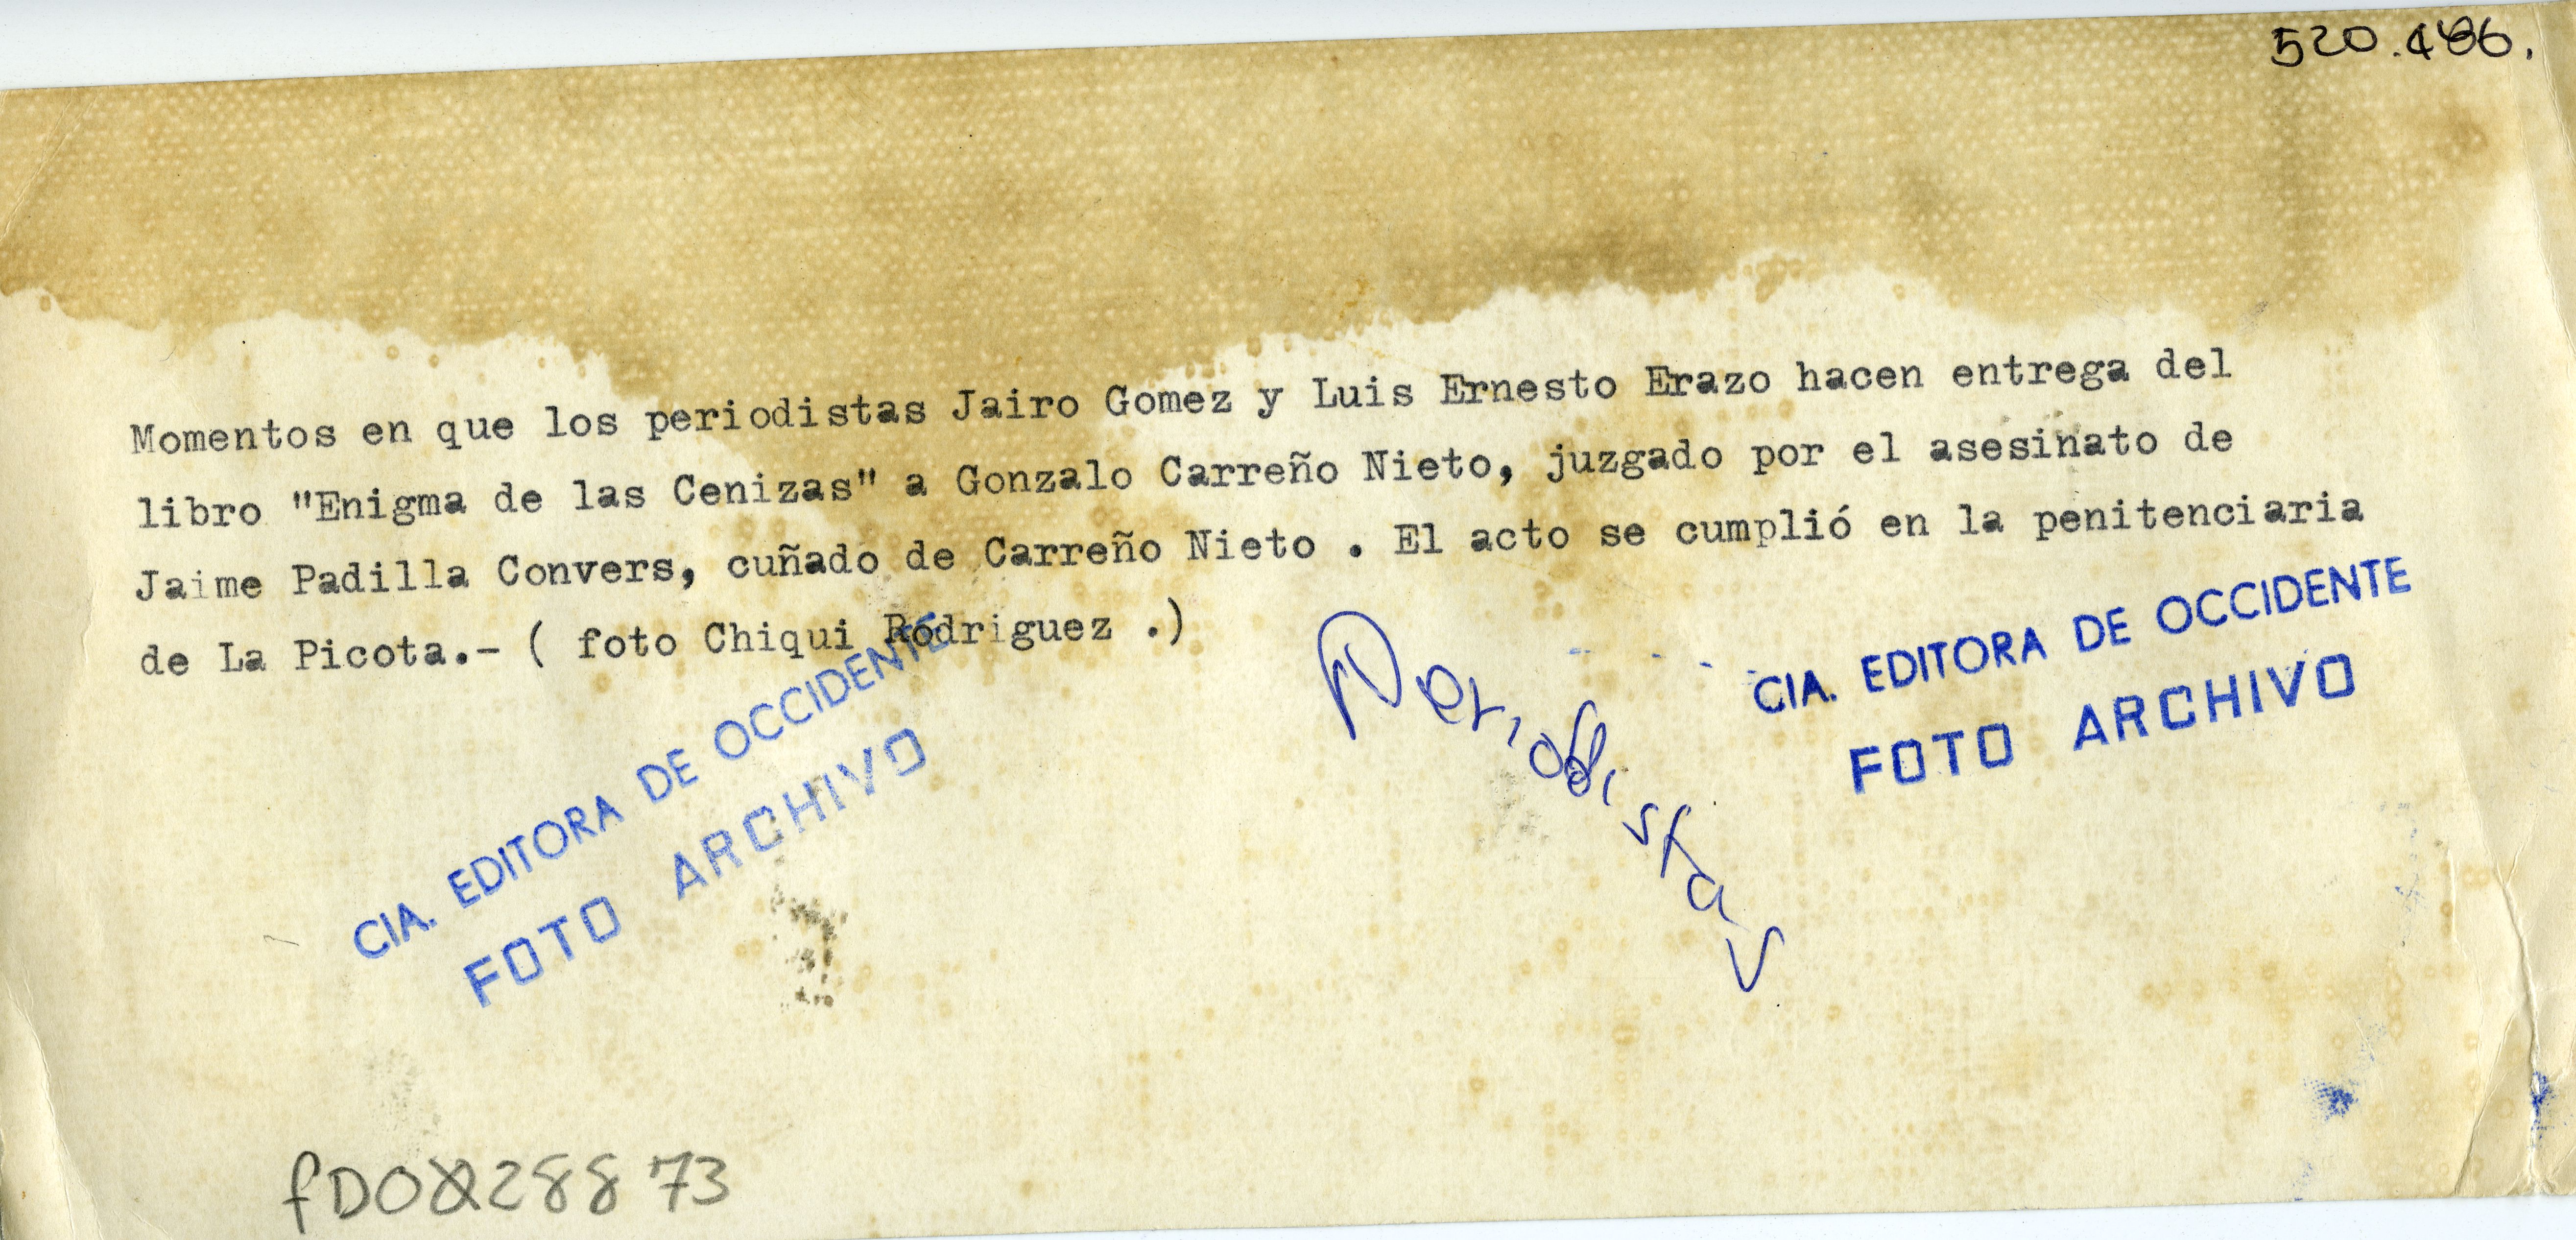 520.486.
Momentos en que los periodistas Jairo Gomez y Luis Ernesto Erazo hacen entrega del
libro "Enigma de las Cenizas" a Gonzalo Carreño Nieto, juzgado por el asesinato de
Jaime Padilla Convers, cuñado de Carreño Nieto . El acto se cumplió en la penitenciaria
de La Picota.- ( foto Chiqui Rodriguez .)
CIA. EDITORA DE OCCIDENTE
FOTO ARCHIVO
Periodistas
CIA. EDITORA DE OCCIDENTE
FOTO ARCHIVO